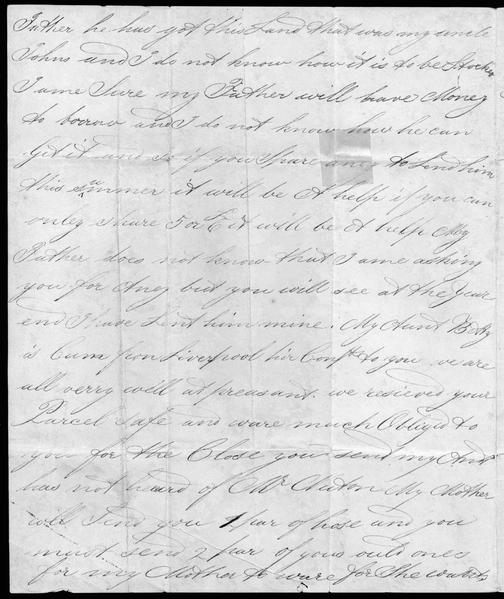 Father he has got this Land that was my uncle
Johns and I do not know how it is to be Stocked
I ame Sure my Father will have Money
to borrow and I do not know how he can
Get it and so if you Spare aney to Lend him
this summer it will be A help if you can
onley Share 5 or 6 it will be A help My
Father does not know that I ame asking
you for Aney but you will see at the year
end I have Lent him mine. My Aunt Betsy
is Cum from Liverpool hir Compts to you we are
all verry well at preasant. we recieved your
Parcel Safe and ware much Obliged to
you for the Close you send. my Aunt
has not heard of Mr My Mother
will Send you 1 par of hose and you
must send 2 par of yous ould ones
for my Mother to ware for She wants